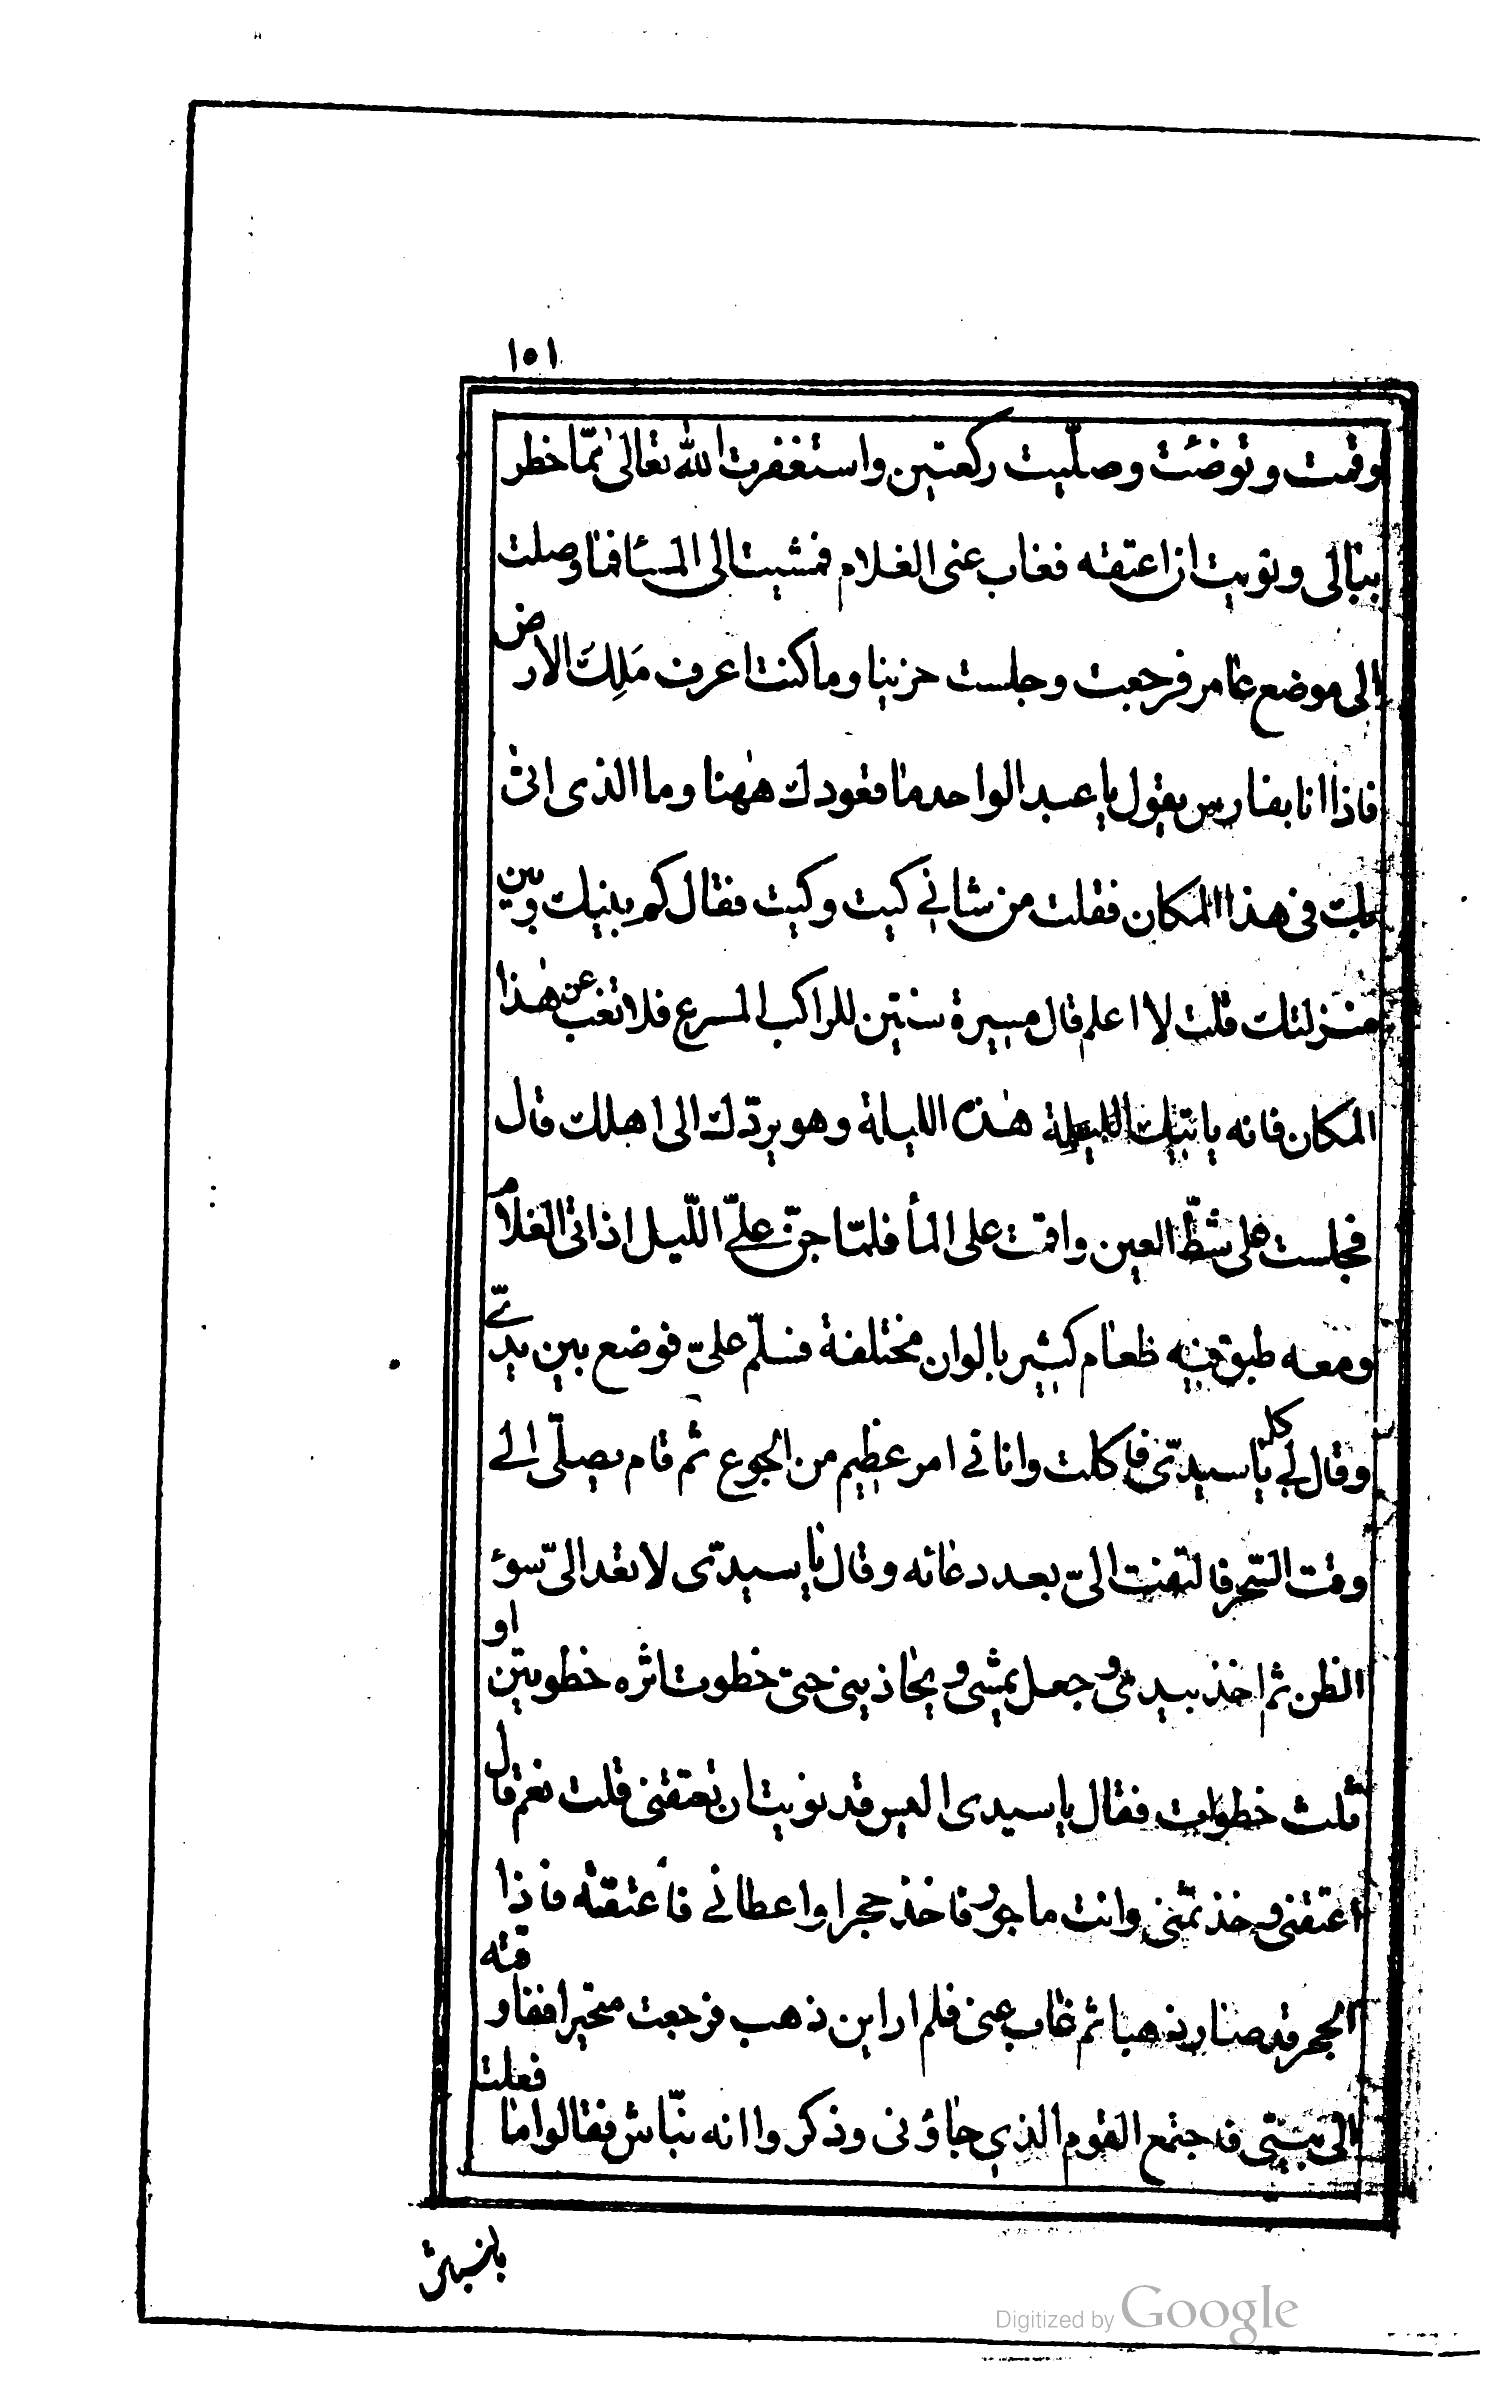 ١٥١
وقمت وتوضئت وصلّيت ركعتين واستغفرت الله تعالى ممّا خطر
ببالى ونويت ان اعتقه فغاب عنى الغلام فمشيت الى المسا فما وصلت
الى موضع عامر فرجعت وجلست حزينا وما كنت اعرف مَلِكَ الارض
فاذا انا بفارس يقول يا عبد الواحد ما قعودك ههنا وما الذى اتى
بك فى هذا المكان فقلت من شانى كيت وكيت فقال كم بينك وبين
منزلتك قلت لا اعلم قال مسيرة سنتين للراكب المسرع فلا تغب عن هذا
المكان فانه ياتيك الليلة هذه الليلة وهو يردّك الى اهلك قال
فجلست على شطّ العين واقمت على الماء فلمّا جنّ علىّ اللّيل اذ اتى الغلام
ومعه طبق فيه طعام كثير بالوان مختلفة فسلّم علىّ فوضع بين يدىّ
وقال لى كل يا سيدى فاكلت وانا فى امر عظيم من الجوع ثم قام يصلّى الى
وقت السّحر فالتفت الىّ بعد دعائه وقال يا سيدى لا تعد الىّ سوء
الظن ثم اخذ بيدى وجعل يمشى و يحاذينى حتى خطوت اثره خطوتين او
ثلث خطوات فقال يا سيدى اليس قد نويت ان تعتقنى قلت نعم قال
اعتقنى وخذ ثمنى وانت ماجور فاخذ حجرا واعطانى فأعتقته فاذا
الحجر قد صار ذهبا ثم غاب عنى فلم ار اين ذهب فرجعت متحيرا فقاوقته
الى بيتى قد جتمع القوم الذى جاؤنى وذكروا انه نبّاش فقالوا ما فعلت
بالنبش
Digitized by Google